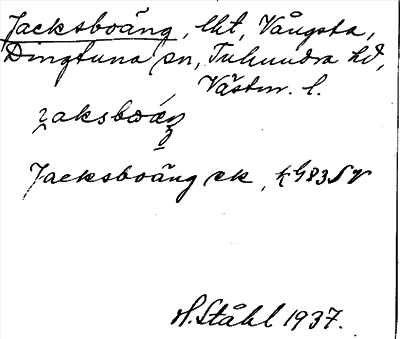 Jacksboäng, lht, Vångsta,
Dingtuna sn, Tuhundra hd,
Västm. l.
Jacksboäng ek
H. Ståhl 1937.